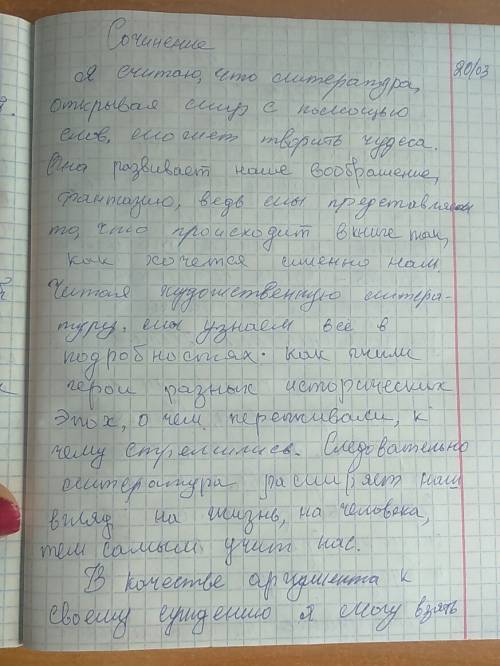 Сочинение
20/03
Я считаю, что литература,
открывая мир с помощью
слов, может творить чудеса.
Она развивает наше воображение,
фантазию, ведь мы представляем
то, что происходит в книге так,
как хочется именно нам.
Читая художественную литера-
туру, мы узнаем все в
подробностях: как жили
герои разных исторических
эпох, о чем переживали, к
чему стремились. Следовательно
литература расширяет наш
взгляд на жизнь, на человека,
тем самым учит нас.
В качестве аргумента к
своему суждению я могу взять